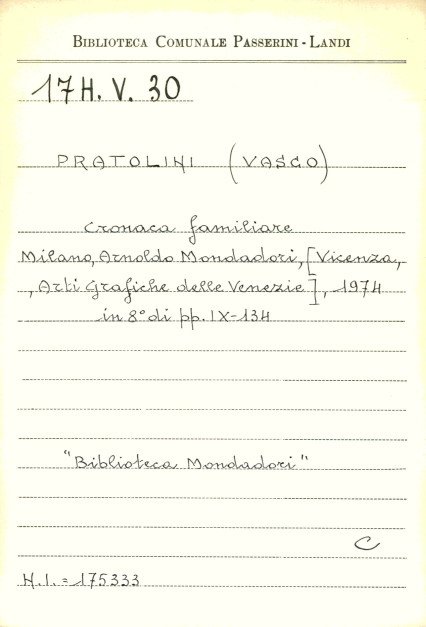 BIBLIOTECA COMUNALE PASSERINI - LANDI
17 H. V. 30
PRATOLINI (VASCO)
Cronaca familiare
Milano, Arnoldo Mondadori, [Vicenza,
, Arti Grafiche delle Venezie], 1974
in 8° di pp. IX-134
"Biblioteca Mondadori"
C
N.I. = 175333